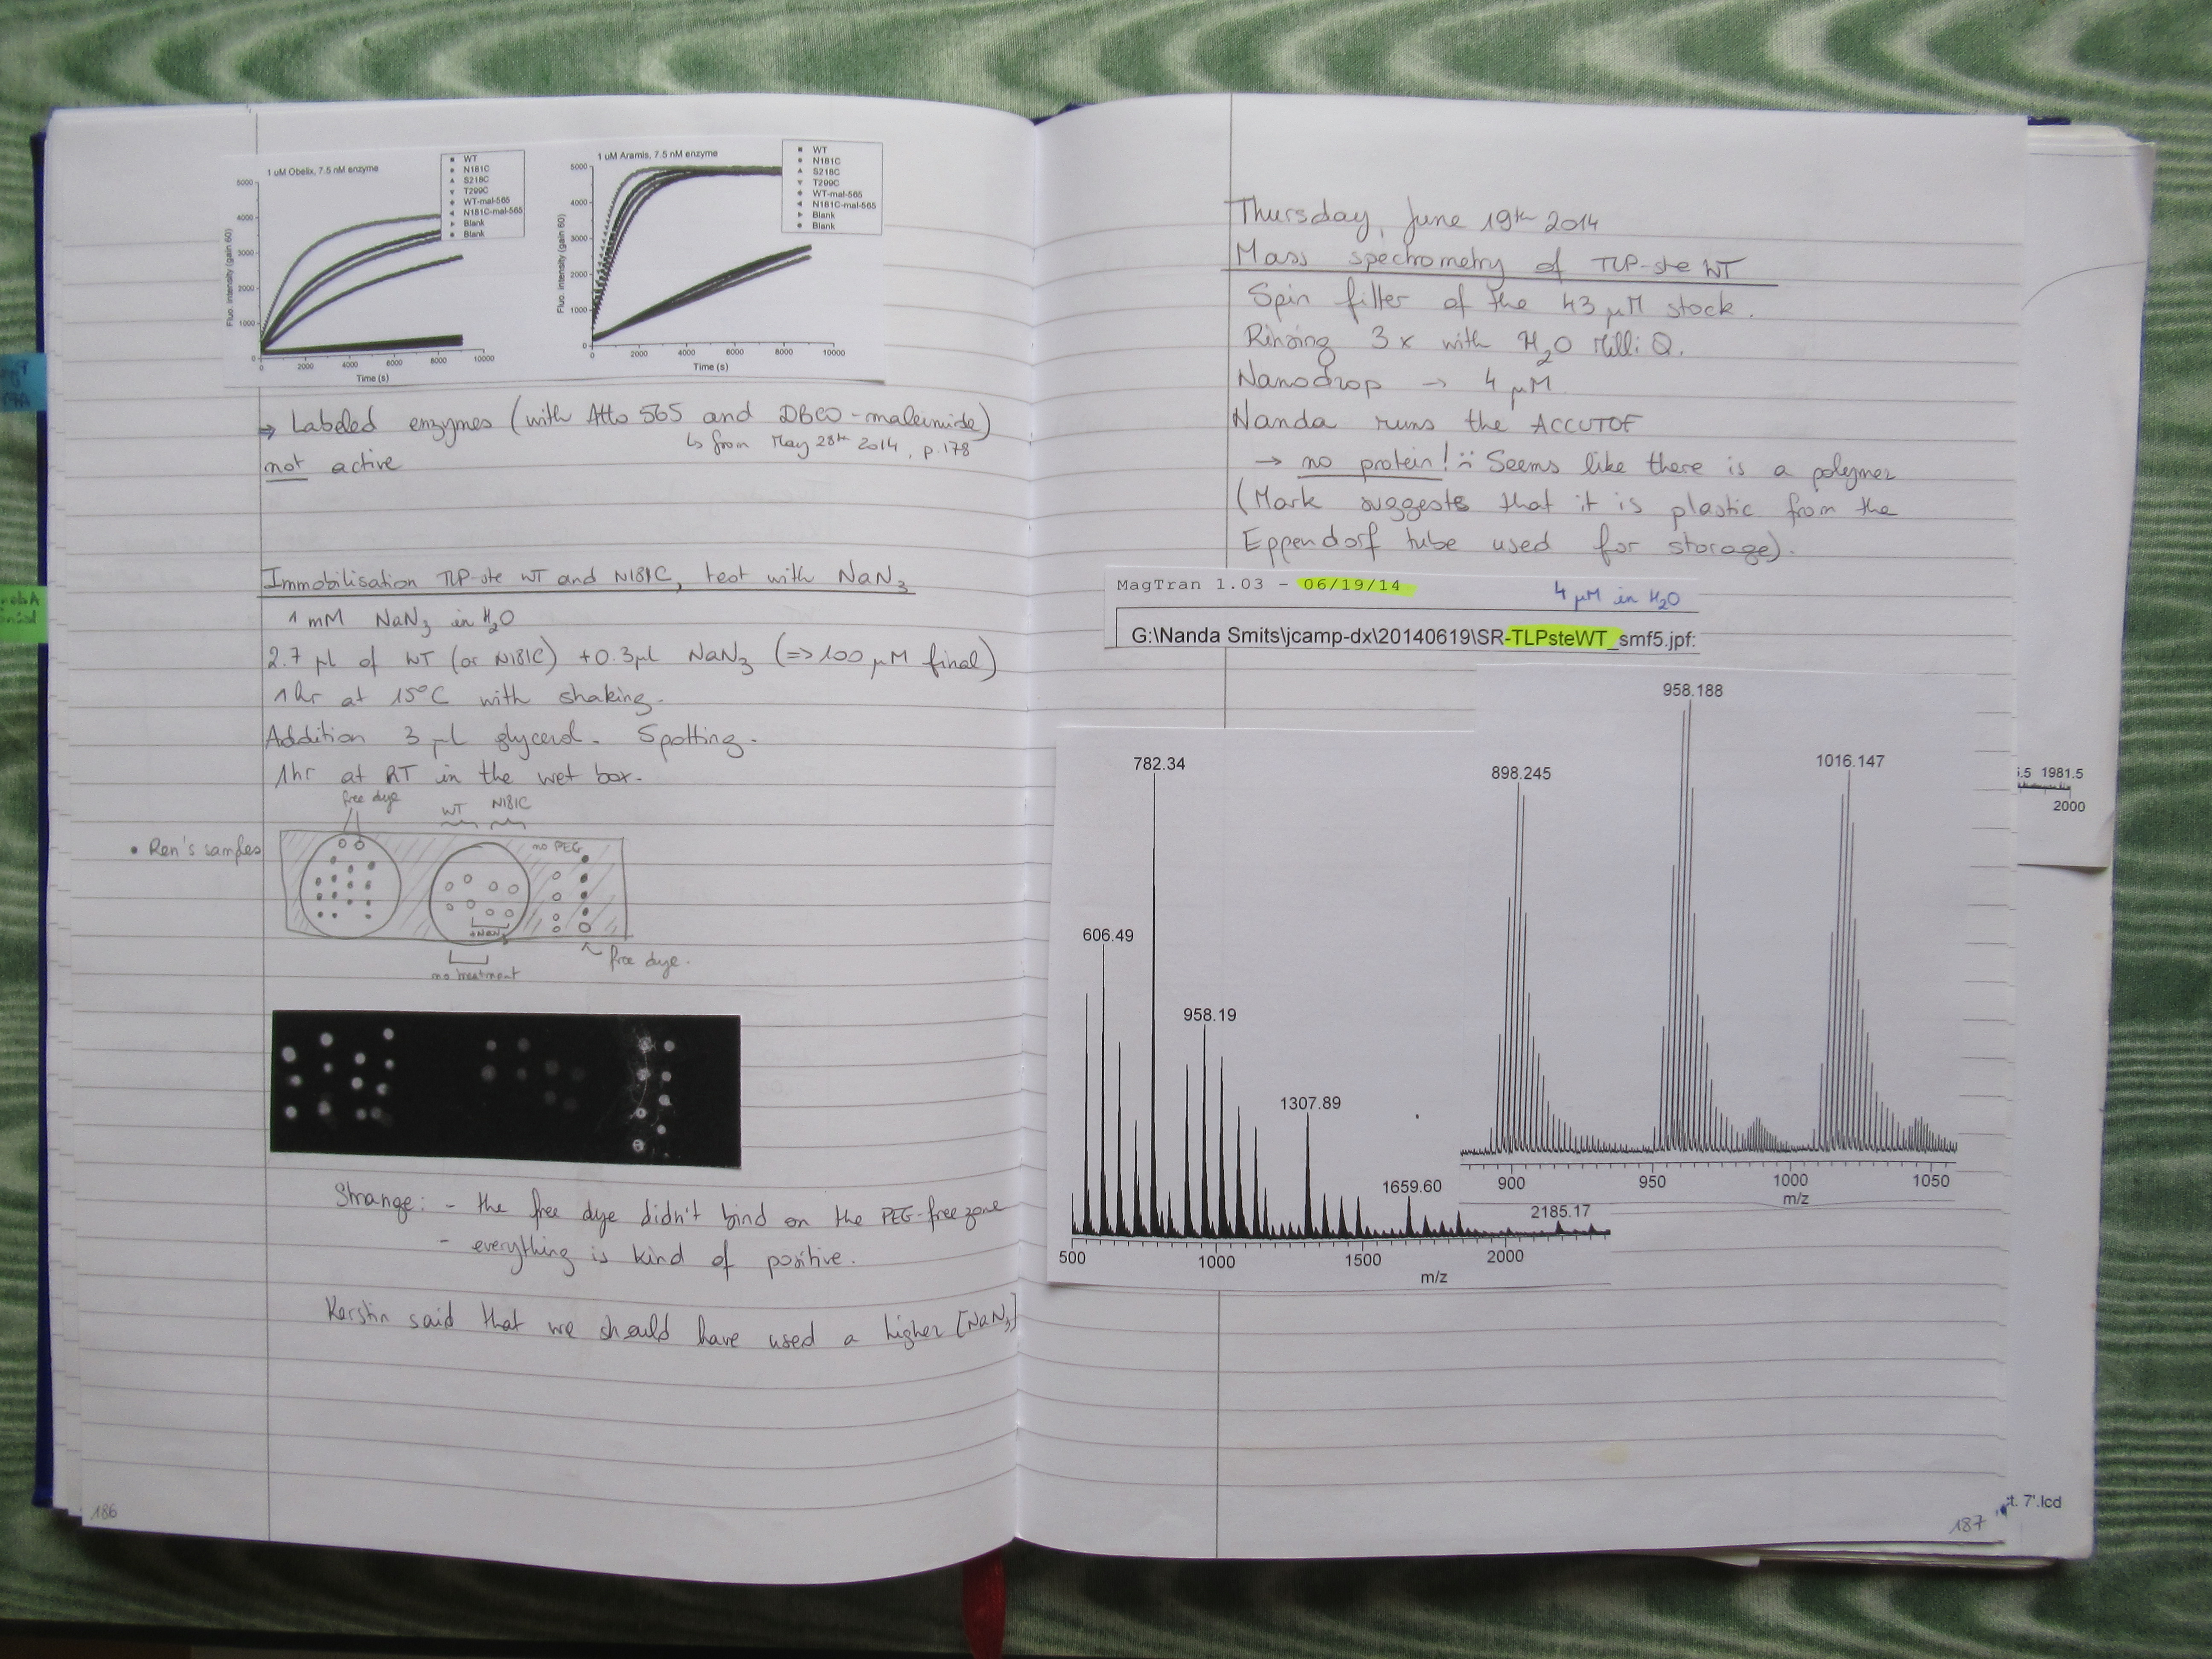 1 uM Obelix, 7.5 nM enzyme
WT
N181C
S218C
T299C
WT-mal-565
N181C-mal-565
Blank
Blank
Fluo. intensity (gain 60)
5000
4000
3000
2000
1000
0
0 2000 4000 6000 8000 10000
Time (s)
1 uM Aramis, 7.5 nM enzyme
WT
N181C
S218C
T299C
WT-mal-565
N181C-mal-565
Blank
Blank
Fluo. intensity (gain 60)
5000
4000
3000
2000
1000
0
0 2000 4000 6000 8000 10000
Time (s)
⇒ Labeled enzymes (with Atto 565 and DBCO-maleimide)
↳ from May 28th 2014, p.178
not active
Immobilisation TLP-ste WT and N181C, test with NaN3
1 mM NaN3 in H2O
2.7 µl of WT (or N181C) +0.3µl NaN3 (=>100 µM final)
1hr at 15°C with shaking.
Addition 3 µl glycerol. Spotting.
1hr at RT in the wet box.
free dye
WT N181C
• Ren's samples
no PEG
+NaN3
no treatment
free dye.
Strange: - the free dye didn't bind on the PEG-free zone
- everything is kind of positive.
Kerstin said that we should have used a higher [NaN3]
186
Thursday, June 19th 2014
Mass spectrometry of TLP-ste WT
Spin filter of the 43 µM stock.
Rinsing 3x with H2O Milli Q.
Nanodrop → 4 µM
Nanda runs the ACCUTOF
→ no protein! :( Seems like there is a polymer
(Mark suggests that it is plastic from the
Eppendorf tube used for storage).
MagTran 1.03 - 06/19/14
4 µM in H2O
G:\Nanda Smits\jcamp-dx\20140619\SR-TLPsteWT_smf5.jpf:
782.34
606.49
958.19
1307.89
1659.60
2185.17
500 1000 1500 2000
m/z
958.188
898.245
1016.147
900 950 1000 1050
m/z
5.5 1981.5
2000
t. 7'.lcd
187